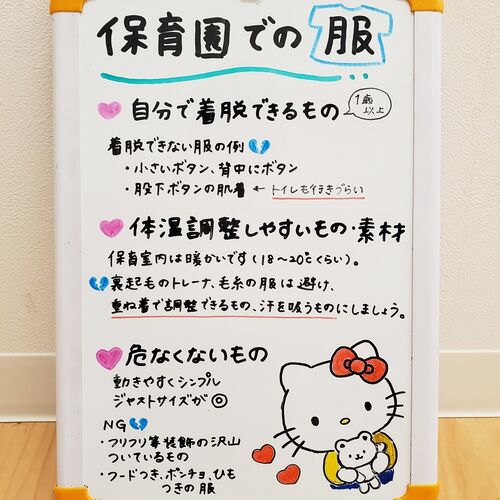 保育園での服
自分で着脱できるもの
1歳
以上
着脱できない服の例
・小さいボタン、背中にボタン
・股下ボタンの肌着 ← トイレも行きづらい
体温調整しやすいもの・素材
保育室内は暖かいです(18〜20℃くらい)。
裏起毛のトレーナ、毛糸の服は避け、
重ね着で調整できるもの、汗を吸うものにしましょう。
危なくないもの
動きやすくシンプル
ジャストサイズが◎
NG
・フリフリ等装飾の沢山
ついているもの
・フードつき、ポンチョ、ひも
つきの服